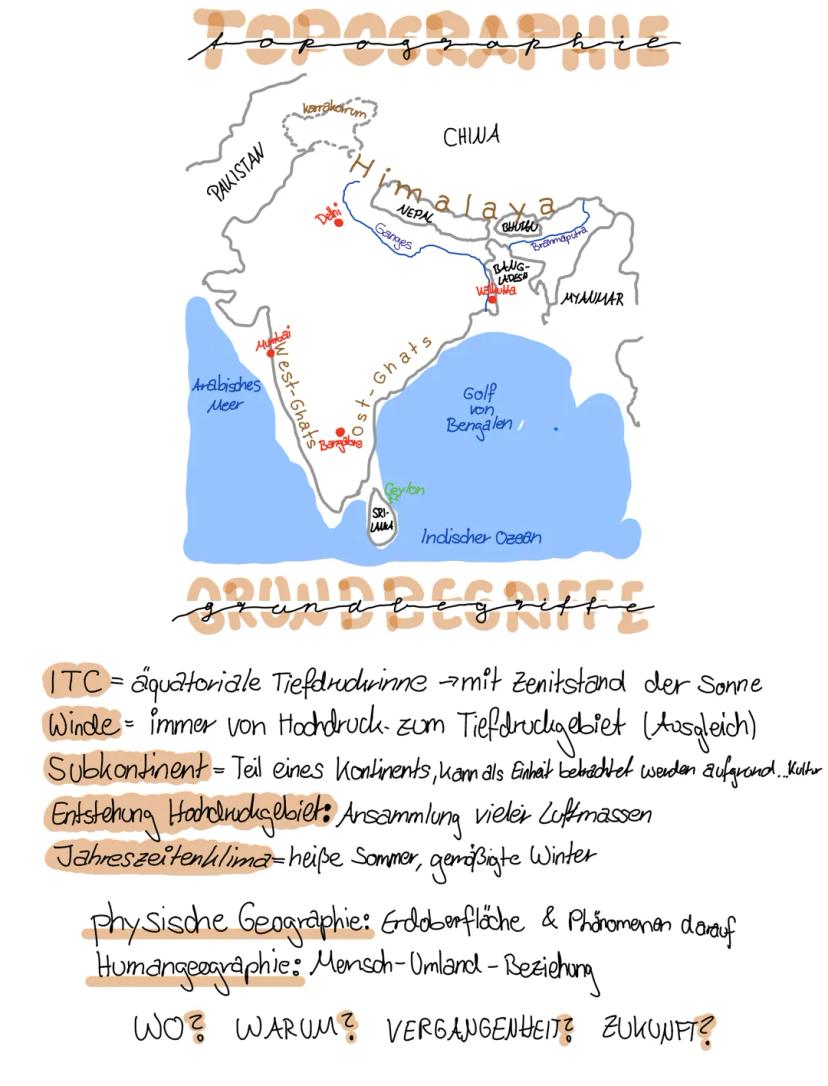 TOPOGRAPHIE
topographie
Karrakorrum
CHINA
PAKISTAN
Himalaya
Delhi
NEPAL
BHUTAN
Ganges
Brahmaputra
BANG-
LADESH
Kalkutta
MYANMAR
Mumbai
West-Ghats
Ost-Ghats
Arabisches
Meer
Golf
von
Bengalen
Bangalore
Ceylon
SRI-
LANKA
Indischer Ozean
GRUNDBEGRIFFE
grundbegriffe
ITC = äquatoriale Tiefdruckrinne → mit Zenitstand der Sonne
Winde = immer von Hochdruck- zum Tiefdruckgebiet (Ausgleich)
Subkontinent = Teil eines Kontinents, kann als Einheit betrachtet werden aufgrund...Kultur
Entstehung Hochdruckgebiet: Ansammlung vieler Luftmassen
Jahreszeitenklima = heiße Sommer, gemäßigte Winter
physische Geographie: Erdoberfläche & Phänomenen darauf
Humangeographie: Mensch-Umland-Beziehung
WO? WARUM? VERGANGENHEIT? ZUKUNFT?